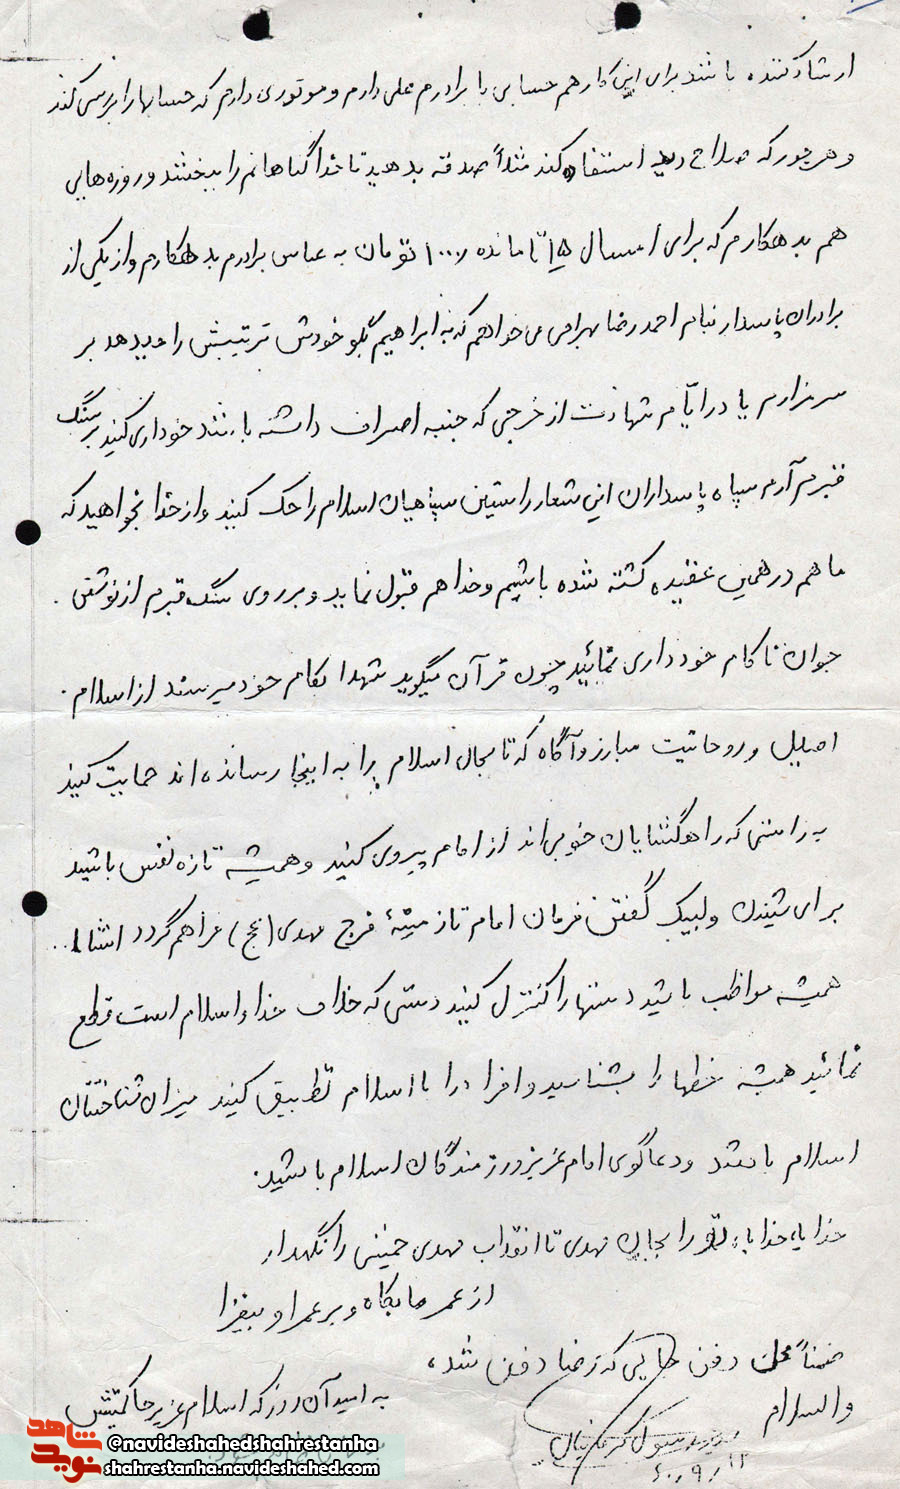 ارشادکننده باشند برای این کار هم حسابی با برادرم علی دارم و موتوری دارم که حسابها را بررسی کند
و هر جور که صلاح دید استفاده کند مثلاً صدقه بدهید تا خدا گناهانم را ببخشد و روزه‌هایی
هم بدهکارم که برای امسال ۱۵ تا مانده ۱۰۰۰ تومان به عباس برادرم بدهکارم و از یکی از
برادران پاسدار بنام احمدرضا بهرامی می خواهم که به ابراهیم بگو خودش ترتیبش را میدهد بر
سر مزارم یا در ایّام شهادت از خرجی که جنبه اصراف داشته باشد خودداری کنید بر سنگ
قبرم آرم سپاه پاسداران این شعار راستین سپاهیان اسلام را حک کنید و از خدا بخواهید که
ما هم در همین عقیده کشته شده باشیم و خدا هم قبول نماید و بر روی سنگ قبرم از نوشتن
جوان ناکام خودداری نمائید چون قرآن میگوید شهدا بکام خود میرسند از اسلام
اصیل و روحانیت مبارز و آگاه که تا بحال اسلام را به اینجا رسانده‌اند حمایت کنید
به راستی که راهگشایان خوبی‌اند از امام پیروی کنید و همیشه تازه نفس باشید
برای شنیدن و لبیک گفتن فرمان امام تا زمینهٔ فرج مهدی (عج) فراهم گردد انشاا...
همیشه مواظب باشید دستها را کنترل کنید دستی که خلاف خدا و اسلام است قطع
نمائید همیشه خطها را بشناسید و افراد را با اسلام تطبیق کنید میزان شناختتان
اسلام باشد و دعاگوی امام عزیز و رزمندگان اسلام باشید.
خدایا، خدایا، تو را بجان مهدی تا انقلاب مهدی خمینی را نگهدار
از عمر ما بکاه و بر عمر او بیفزا
ضمناً محل دفن جایی که رضا دفن شد،
والسلام
به امید آن روز که اسلام عزیز حاکمیتش
۶۰/۹/۱۲
شاهد
نوید
©navideshahedshahrestanha
shahrestanha.navideshahed.com